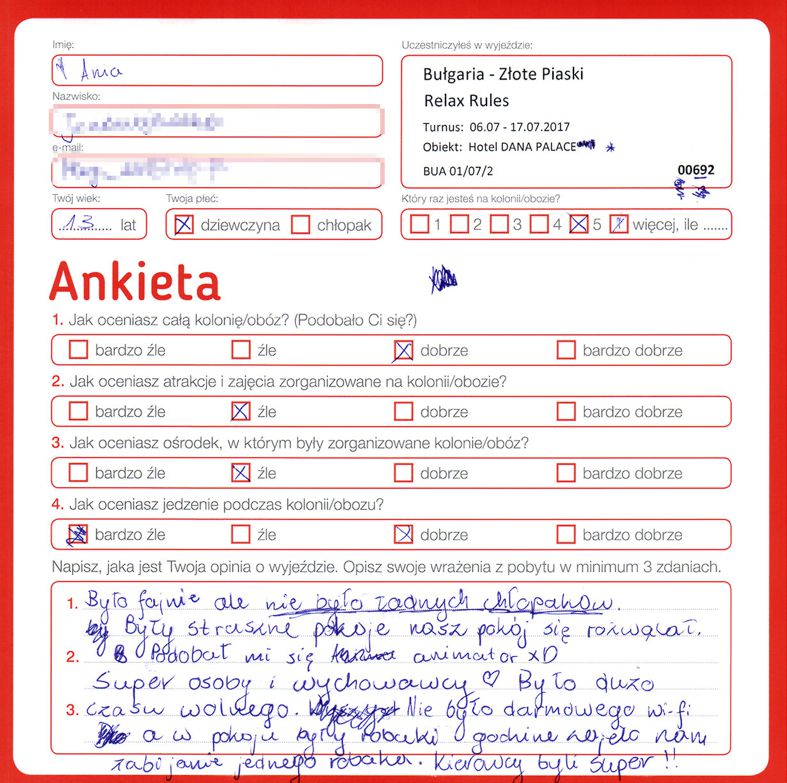 Imię:
Ania
Uczestniczyłeś w wyjeździe:
Bułgaria - Złote Piaski
Relax Rules
Turnus: 06.07 - 17.07.2017
Obiekt: Hotel DANA PALACE
BUA 01/07/2
00692
Nazwisko:
e-mail:
Twój wiek:
13 lat
Twoja płeć:
dziewczyna chłopak
Który raz jesteś na kolonii/obozie?
1 2 3 4 5 więcej, ile .......
Ankieta
1. Jak oceniasz całą kolonię/obóz? (Podobało Ci się?)
bardzo źle źle dobrze bardzo dobrze
2. Jak oceniasz atrakcje i zajęcia zorganizowane na kolonii/obozie?
bardzo źle źle dobrze bardzo dobrze
3. Jak oceniasz ośrodek, w którym były zorganizowane kolonie/obóz?
bardzo źle źle dobrze bardzo dobrze
4. Jak oceniasz jedzenie podczas kolonii/obozu?
bardzo źle źle dobrze bardzo dobrze
Napisz, jaka jest Twoja opinia o wyjeździe. Opisz swoje wrażenia z pobytu w minimum 3 zdaniach.
1. Było fajnie ale nie było żadnych chłopaków.
Były straszne pokoje nasz pokój się rozwalał.
2. Podobał mi się animator xD
Super osoby i wychowawcy ♡ Było dużo
3. czasu wolnego. Nie było darmowego wi-fi
a w pokoju były robaki godzinę zajęło nam
zabijanie jednego robaka. Kierowcy byli super !!